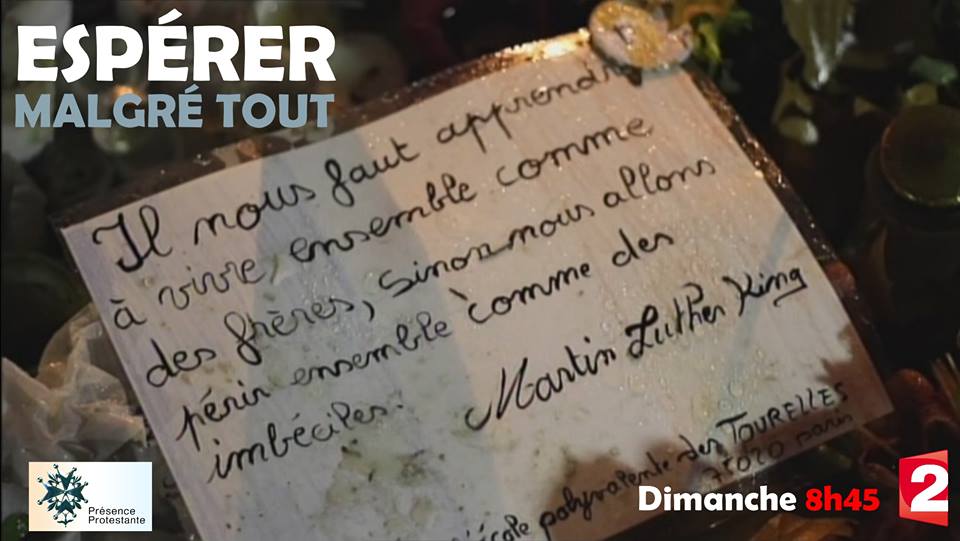 ESPÉRER
MALGRÉ TOUT
Il nous faut apprendre
à vivre ensemble comme
des frères, sinon nous allons
périr ensemble comme des
imbéciles.
Martin Luther King
école polyvalente des TOURELLES
75020 Paris
Présence
Protestante
Dimanche 8h45
2